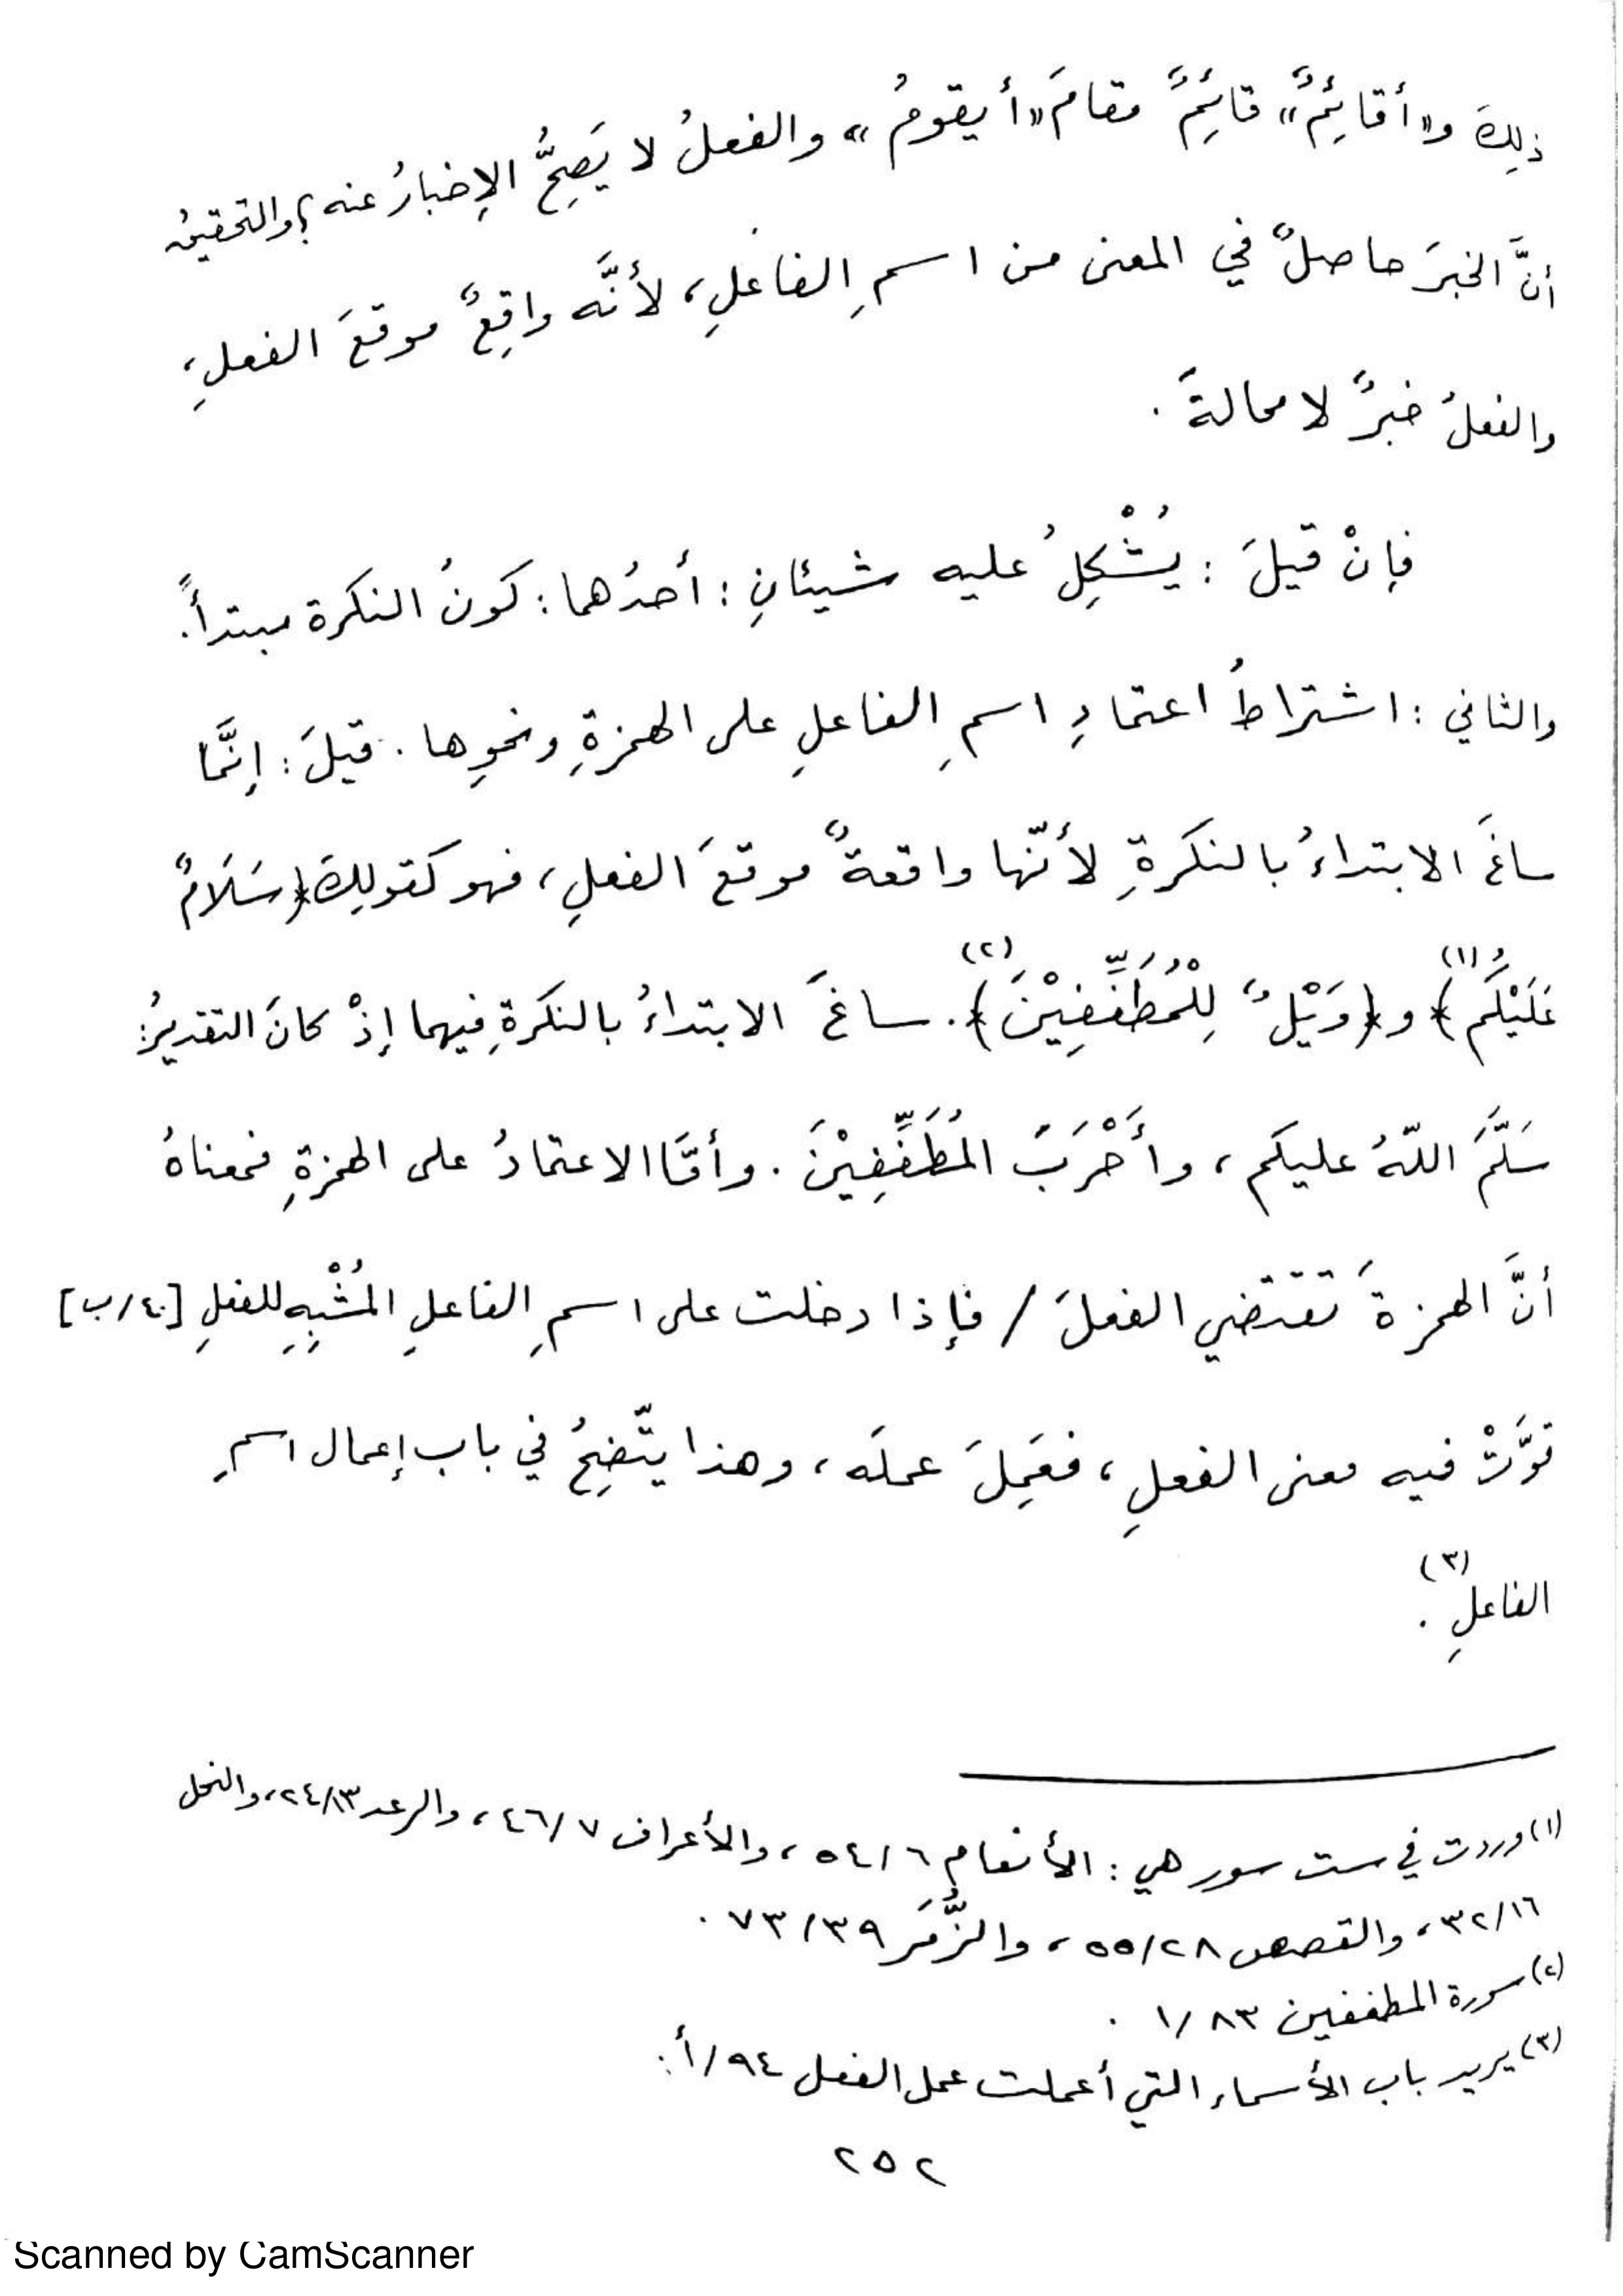 ذلِكَ و«أقائِمٌ» قائِمٌ مقامَ «أيقومُ» والفعلُ لا يَصِحُّ الإخبارُ عنه؟ والتحقيقُ
أنَّ الخبرَ حاصلٌ في المعنى من اسمِ الفاعلِ، لأنَّه واقِعٌ موقعَ الفعلِ،
والفعلُ خبرٌ لا محالةَ.
فإنْ قيلَ: يُشْكِلُ عليه شيئانِ: أحدُهما: كونُ النكرة مبتدأً.
والثاني: اشتراطُ اعتمادِ اسمِ الفاعلِ على الهمزةِ ونحوِها. قيلَ: إنَّما
ساغَ الابتداءُ بالنكرةِ لأنّها واقعةٌ موقعَ الفعلِ، فهو كقولِكَ ﴿سَلَامٌ
عَلَيْكُم﴾(١) و﴿وَيْلٌ لِلْمُطَفِّفِيْنَ﴾(٢). ساغَ الابتداءُ بالنكرةِ فيهما إذْ كانَ التقديرُ:
سَلَّمَ اللّهُ عليكم، وأَحْرَبَ المُطَفِّفِيْنَ. وأمّا الاعتمادُ على الهمزةِ فمعناهُ
أنَّ الهمزةَ تقتضي الفعلَ / فإذا دخلت على اسمِ الفاعلِ المُشْبِهِ للفعلِ [٤٠/ب]
قوَّتْ فيه معنى الفعلِ، فعَمِلَ عملَه، وهذا يتّضِحُ في باب إعمال اسمِ
الفاعلِ(٣).
(١) وردت في ست سور هي: الأنعام ٥٤/٦، والأعراف ٤٦/٧، والرعد ٢٤/١٣، والنحل
٣٢/١٦، والقصص ٥٥/٢٨، والزُّمَر ٧٣/٣٩.
(٢) سورة المطففين ١/٨٣.
(٣) يريد باب الأسماء التي أعملت عمل الفعل ٩٤/أ.
٢٥٢
Scanned by CamScanner